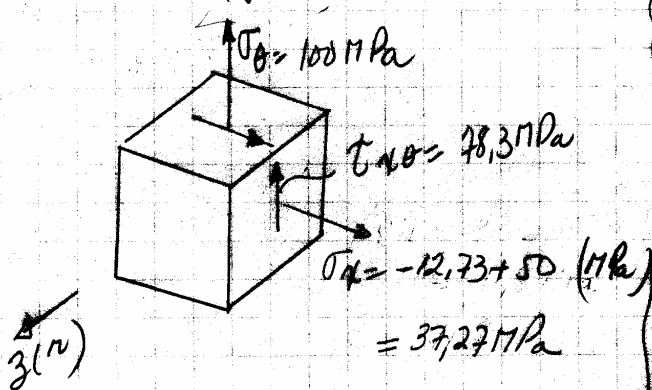 σθ = 100 MPa
τxθ = 78,3 MPa
σx = -12,73 + 50 (MPa)
= 37,27 MPa
z(r)